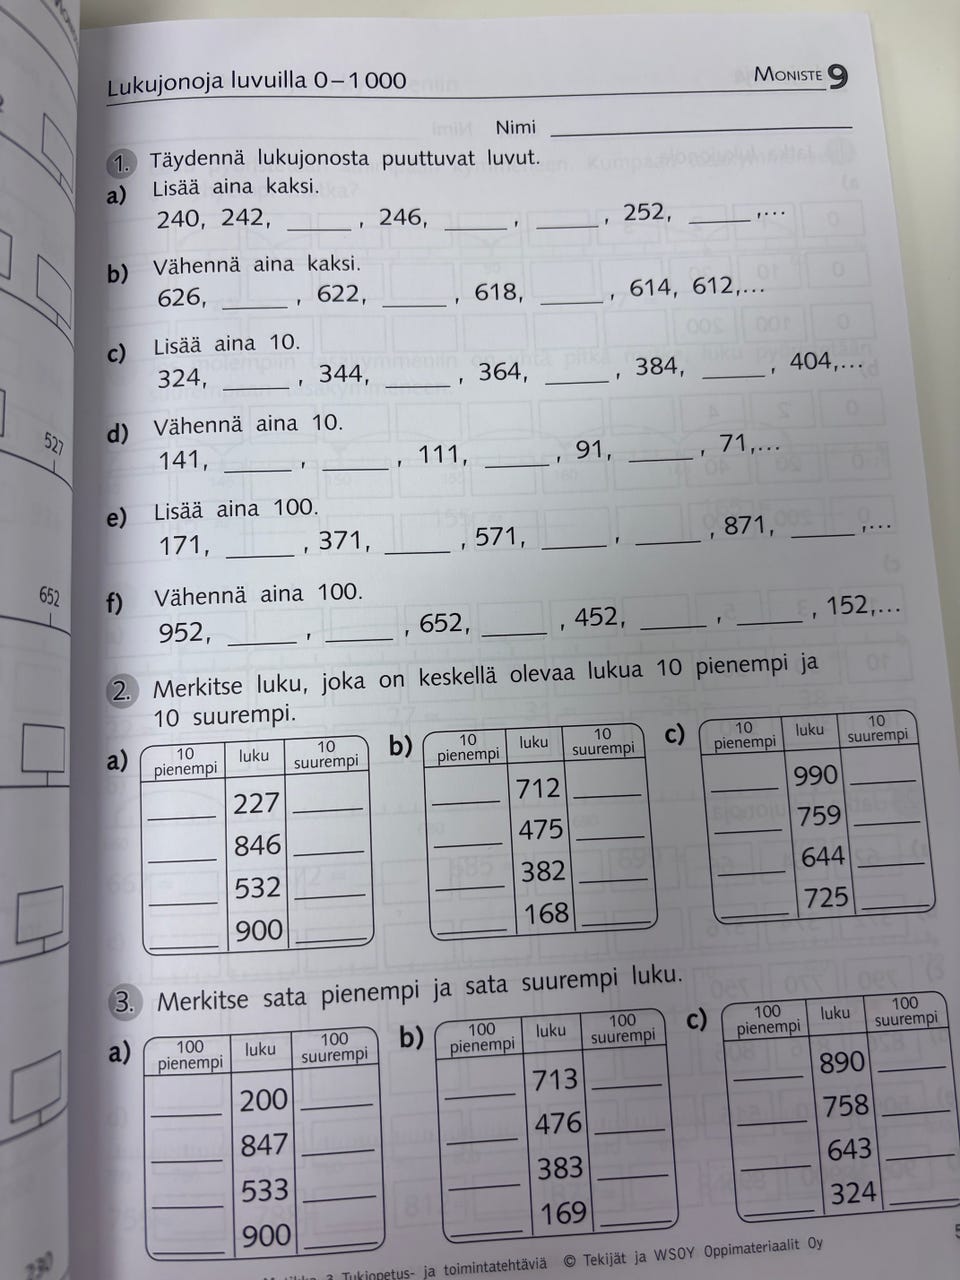 Lukujonoja luvuilla 0–1 000
MONISTE 9
Nimi
1. Täydennä lukujonosta puuttuvat luvut.
a) Lisää aina kaksi.
240, 242, _____ , 246, _____ , _____ , 252, _____ ,...
b) Vähennä aina kaksi.
626, _____ , 622, _____ , 618, _____ , 614, 612,...
c) Lisää aina 10.
324, _____ , 344, _____ , 364, _____ , 384, _____ , 404,...
d) Vähennä aina 10.
141, _____ , _____ , 111, _____ , 91, _____ , 71,...
e) Lisää aina 100.
171, _____ , 371, _____ , 571, _____ , _____ , 871, _____ ,...
f) Vähennä aina 100.
952, _____ , _____ , 652, _____ , 452, _____ , _____ , 152,...
2. Merkitse luku, joka on keskellä olevaa lukua 10 pienempi ja
10 suurempi.
a)
10 pienempi luku 10 suurempi
227
846
532
900
b)
10 pienempi luku 10 suurempi
712
475
382
168
c)
10 pienempi luku 10 suurempi
990
759
644
725
3. Merkitse sata pienempi ja sata suurempi luku.
a)
100 pienempi luku 100 suurempi
200
847
533
900
b)
100 pienempi luku 100 suurempi
713
476
383
169
c)
100 pienempi luku 100 suurempi
890
758
643
324
3 Tukiopetus- ja toimintatehtäviä © Tekijät ja WSOY Oppimateriaalit Oy
527
652